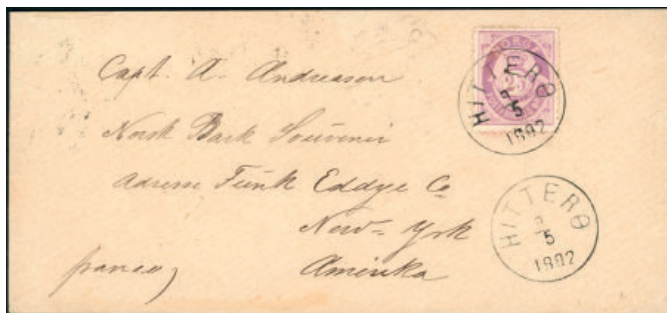 Capt. A. Andreasen
Norsk Bark Souvenir
Adresse Funk Eddye Co
New-York
franco
Amerika
NORGE
25
HITTERØ
5
1882
HITTERØ
5
1882